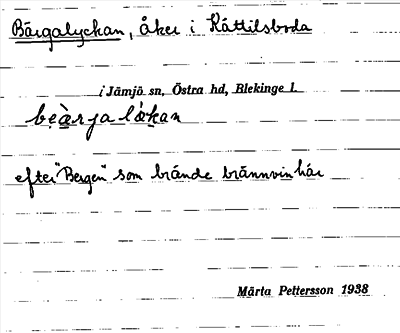 Bärgalyckan, åker i Kåttilsboda
i Jämjö sn, Östra hd, Blekinge l.
efter "Bergen" som brände brännvin här
Märta Pettersson 1938